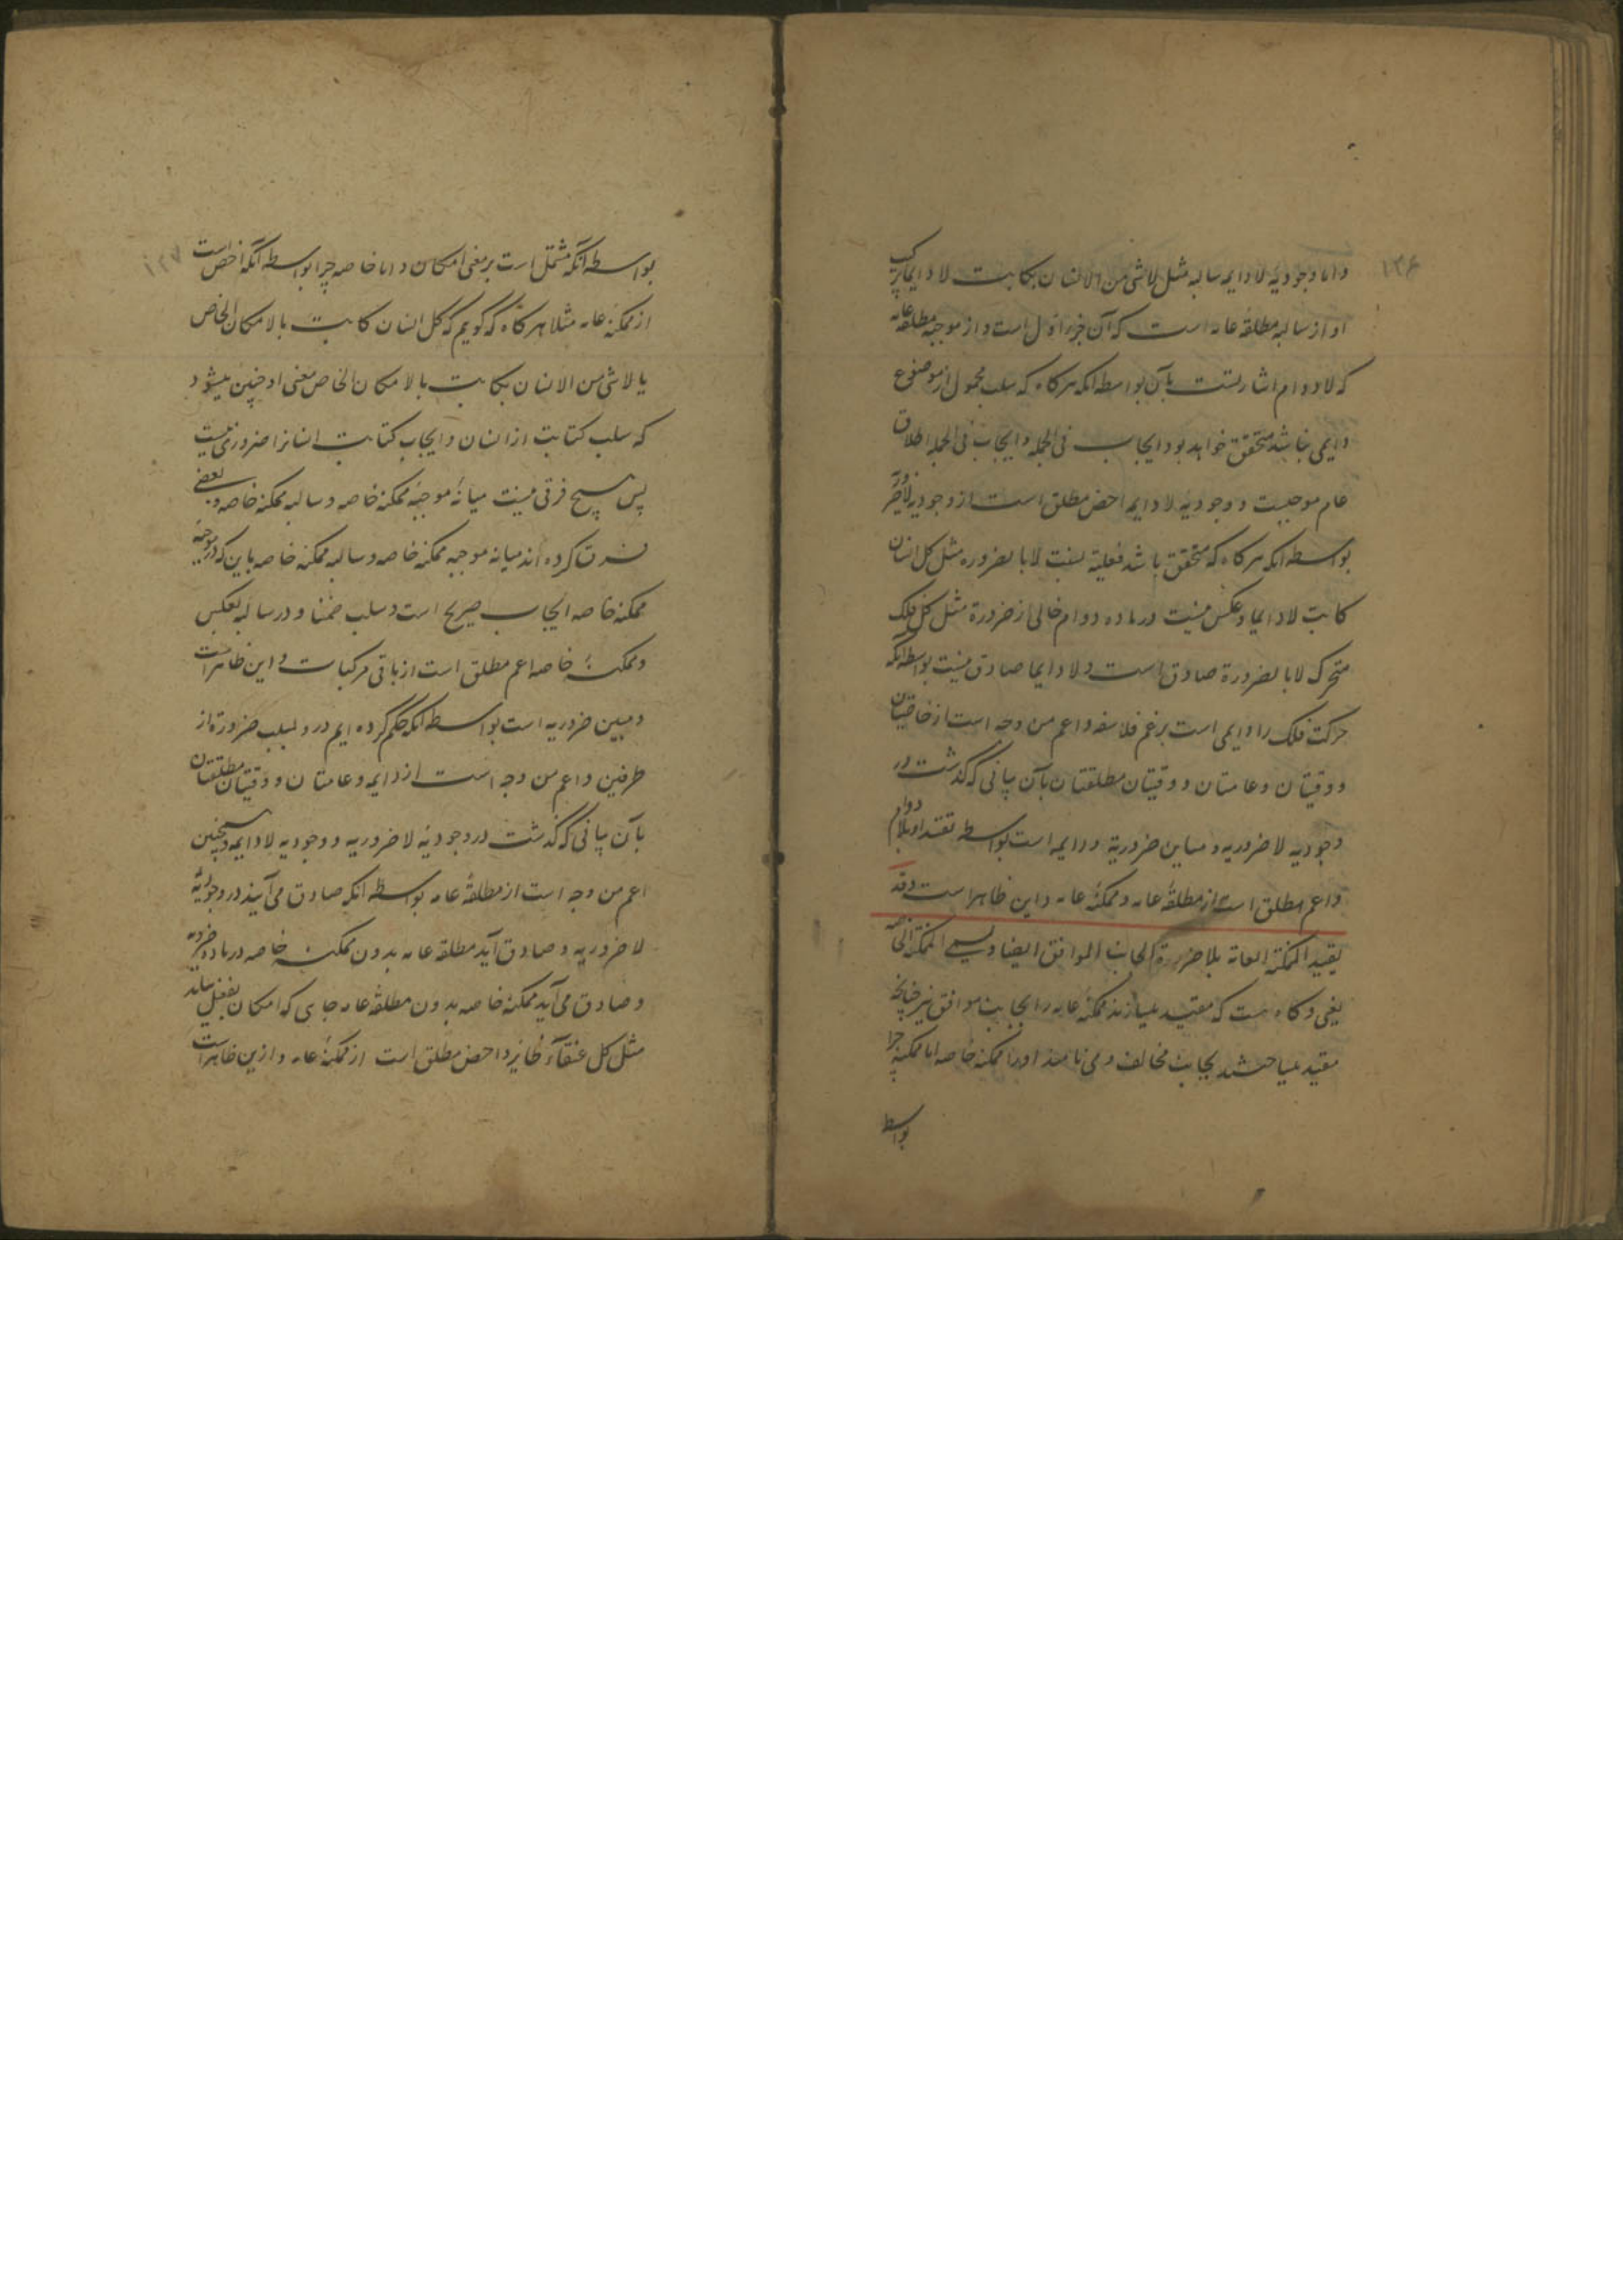 ۱۳۶
و اما وجودیهٔ لا دایمه سالبه مثل لا شی من الانسان بکاتب لا دایما ترکیب
او از سالبه مطلقهٔ عامه است که آن جزء اول است و از موجبه مطلقه عامه
که لا دوام اشارتست بآن بواسطه آنکه هرکاه که سلب محمول از موضوع
دایمی نباشد متحقق خواهد بود ایجاب فی الجمله و ایجاب فی الجمله اطلاق
عام موجبست و وجودیهٔ لا دایمه اخص مطلق است از وجودیه لا ضرور
بواسطه آنکه هرکاه که متحقق باشد فعلیة نسبت لا بالضروره مثل کل انسان
کاتب لا دایما و عکس نیست در ماده دوام خالی از ضرورة مثل کل فلک
متحرک لا بالضرورة صادق است و لا دایما صادق نیست بواسطه آنکه
حرکت فلک را دایمی است برغم فلاسفه و اعم من وجه است از خاصیتان
و وقتیتان و عامتان و وقتیتان مطلقتان بآن بیانی که گذشت در
وجودیه لا ضروریه و مباین ضروریة و دایمه است بواسطه تقید او بلا دوام
و اعم مطلق است از مطلقهٔ عامه و ممکنهٔ عامه و این ظاهر است و قد
یقید الممکنة العامة بلا ضرورة الجانب الموافق ایضا و یسمی الممکنة الخاصه
یعنی و کاه هست که مقید میسازند ممکنهٔ عامه را بجانب موافق نیز چنانچه
مقید میساختند بجانب مخالف و می نامند او را ممکنه خاصه اما ممکنه چرا
بواسط
۱۳۷
بواسطه آنکه مشتمل است بر معنی امکان و اما خاصه چرا بواسطه آنکه اخص است
از ممکنهٔ عامه مثلا هرکاه که گویم که کل انسان کاتب بالامکان الخاص
یا لا شی من الانسان بکاتب بالامکان الخاص معنی او چنین میشود
که سلب کتابت از انسان و ایجاب کتابت انسانرا ضروری نیست
پس هیچ فرقی نیست میانهٔ موجبهٔ ممکنه خاصه و سالبه ممکنه خاصه و بعضی
فرق کرده اند میانه موجبه ممکنه خاصه و سالبه ممکنه خاصه باین که در موجبهٔ
ممکنه خاصه ایجاب صریح است و سلب ضمنا و در سالبه بعکس
و ممکنهٔ خاصه اعم مطلق است از باقی مرکبات و این ظاهر است
و مبین ضروریه است بواسطه آنکه حکم کرده ایم درو بسلب ضرورة از
طرفین و اعم من وجه است از دایمه و عامتان و وقتیتان مطلقتان
بآن بیانی که گذشت در وجودیهٔ لا ضروریه و وجودیه لا دایمه و همچنین
اعم من وجه است از مطلقهٔ عامه بواسطه آنکه صادق می آیند در وجودیهٔ
لا ضروریه و صادق آید مطلقه عامه بدون ممکنهٔ خاصه در ماده ضروریه
و صادق می آید ممکنه خاصه بدون مطلقهٔ عامه جای که امکان بفعل نیاید
مثل کل عنقاء طایر و اخص مطلق است از ممکنهٔ عامه و ازین ظاهر است